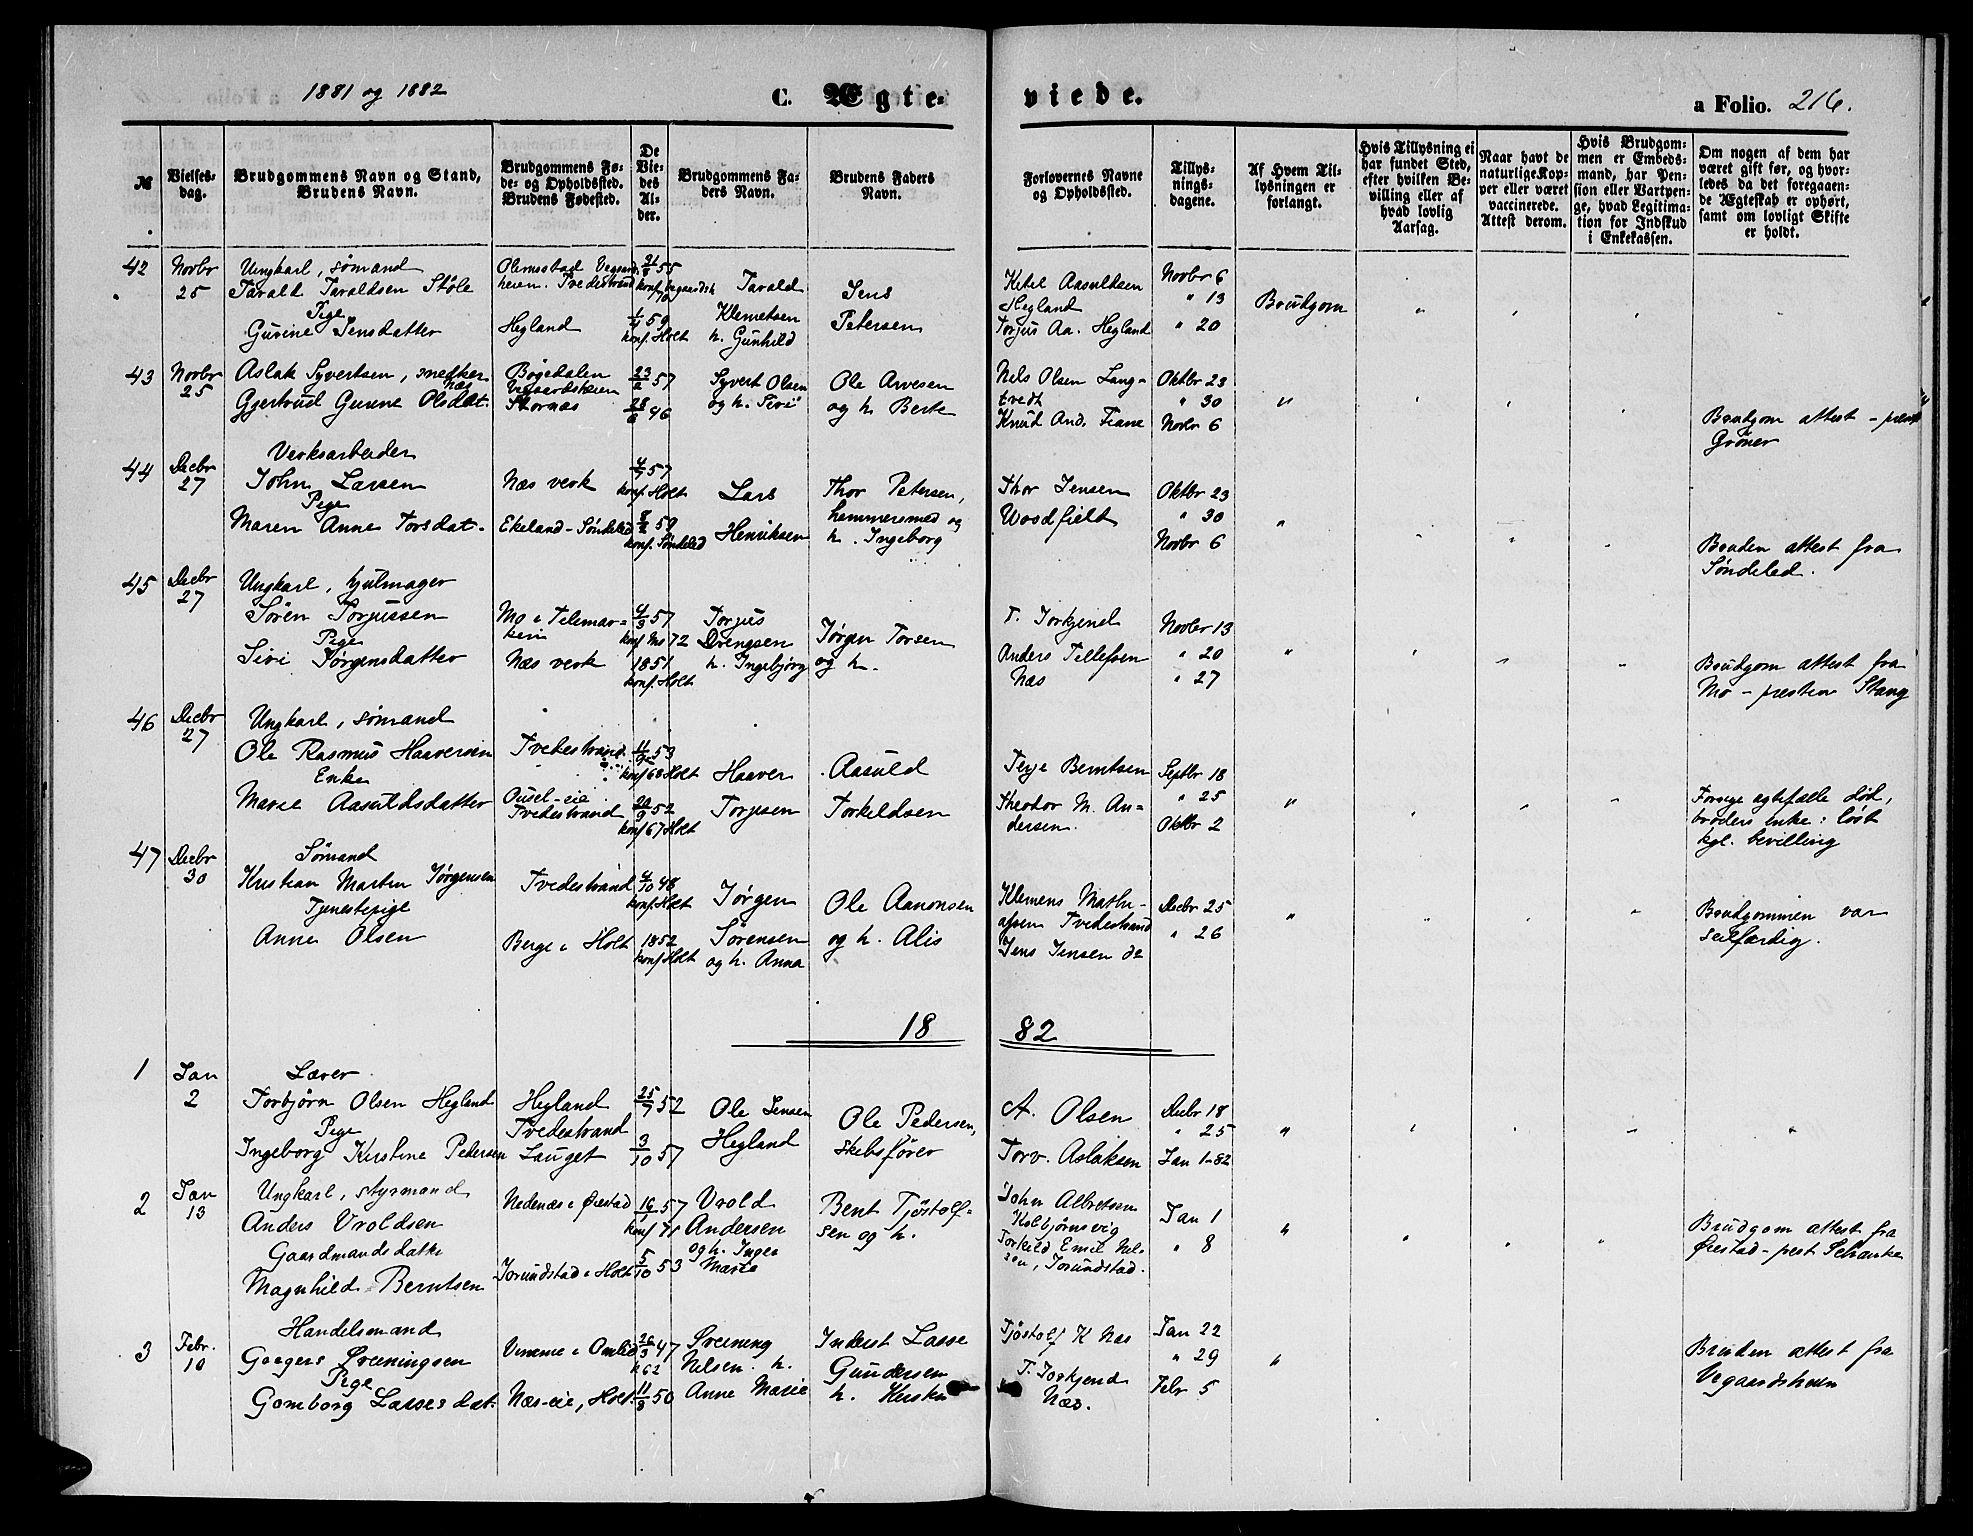 1881 og 1882
C. Ægte-
viede.
a Folio. 216.
№
Vielses-
dag.
Brudgommens Navn og Stand,
Brudens Navn.
Brudgommens Fø-
de- og Opholdssted.
Brudens Fødested.
De
Vie-
des
Al-
der.
Brudgommens Fa-
ders Navn.
Brudens Faders
Navn.
Forlovernes Navne
og Opholdssted.
Tillys-
nings-
dagene.
Af Hvem Til-
lysningen er
forlangt.
Hvis Tillysning ei
har fundet Sted,
efter hvilken Be-
villing eller af
hvad lovlig
Aarsag.
Naar havt de
naturlige Kop-
per eller været
vaccinerede.
Attest derom.
Hvis Brudgom-
men er Embeds-
mand, har Pen-
sion eller Vartpen-
ge, hvad Legitima-
tion for Indskud
i Enkekassen.
Om nogen af dem har
været gift før, og hvor-
ledes da det foregaaen-
de Ægteskab er ophørt,
samt om lovligt Skifte
er holdt.
42
Novbr
25
Ungkarl, sømand
Tarald Taraldsen Støle
Pige
Gurine Jensdatter
heien. Tvedestrand
Hegland
1/4 59
konf. Holt
Tarald
Klemetsen
h. Gunhild
Jens
Petersen
Ketel Aasuldsen
Hegland
Torjus Aa. Hegland
Novbr 6
" 13
" 20
Brudgom
43
Novbr
25
Aslak Syvertsen, snedker
Næs
Gjertrud Gurine Olsdat.
Bøgedalen
Vegaardsheien
Stornæs
23/2 57
28/2 46
Syvert Olsen
og h. Siri
Ole Arvesen
og h. Berte
Nels Olsen Lang-
tvedt
Knud And. Fiane
Oktbr 23
" 30
Novbr 6
"
Brudgom attest - præst
Grøner
44
Decbr
27
Verksarbeider
John Larsen
Pige
Maren Anne Torsdat.
Næs verk
Ekeland - Søndeled
4/7 57
konf. Holt
8/2 59
konf. Søndeled
Lars
Henriksen
Thor Petersen,
hammersmed og
h. Ingeborg
Thor Jensen
Woodfield
Oktbr 23
" 30
Novbr 6
"
Bruden attest fra
Søndeled.
45
Decbr
27
Ungkarl, hjulmager
Søren Torjussen
Pige
Siri Jørgensdatter
Mo i Telemar-
ken
Næs verk
4/3 57
konf Mo 72
1851
konf. Holt
Torjus
Drengsen
h. Ingebjørg
Jørgen Torsen
og h.
T. Torkjend
Anders Tellefsen
Næs
Novbr 13
" 20
" 27
"
Brudgom attest fra
Mo - presten Stang
46
Decbr
27
Ungkarl, sømand
Ole Rasmus Haaversen
Enke
Marie Aasuldsdatter
Tvedestrand
Ousel-eie
Tvedestrand
11/9 53
konf 68 Holt
konf 67 Holt
Haaver
Torjesen
Aasuld
Torkildsen
Terje Berntsen
Theodor M. An-
dersen.
Septbr 18
" 25
Oktbr 2
"
Forrige ægtefælle død,
broders enke: løst
kgl. bevilling
47
Decbr
30
Sømand
Kristian Martin Jørgensen
Tjenestepige
Anne Olsen
Tvedestrand
Berge i Holt
4/10 48
konf. Holt
1852
konf Holt
Jørgen
Sørensen
og h. Anna
Ole Aanonsen
og h. Alis
Klemens Mathi-
assen Tvedestrand
Jens Jensen do
Decbr 25
" 26
"
Brudgommen var
seilfærdig.
18 82
1
Jan
2
Lærer
Torbjørn Olsen Hegland
Pige
Ingeborg Kirstine Pedersen
Hegland
Tvedestrand
Lauget
25/7 52
3/10 57
Ole Jensen
Hegland
Ole Pedersen,
skibsfører
A. Olsen
Torv. Aslaksen
Decbr 18
" 25
Jan 1-82
"
2
Jan
13
Ungkarl, styrmand
Anders Vroldsen
Gaardmandsdatter
Magnhild Berntsen
Nedenæs i Øiestad
Jorundstad i Holt
16/1 57
konf 71
5/10 53
Vrold
Andersen
og h. Inger
Marie
Bent Tjøstolf-
sen og h.
John Albretsen
Kolbjørnsvig
Torkild Emil Nel-
sen, Jorundstad.
Jan 1
" 8
"
Brudgom attest fra
Øiestad - prest Schanke
3
Febr.
10
Handelsmand
Gregers Øveningsen
Pige
Gomborg Lassesdat.
Vimme i Omlid
Næs-eie, Holt.
26/3 47
k 62
11/3 50
Øveining
Nelsen. h.
Anne Marie
Inderst Lasse
Gundersen
h. Kirsten
Tjøstolf K Næs
T. Torkjend
Næs.
Jan 22
" 29
Febr 5
"
Bruden attest fra
Vegaardsheien